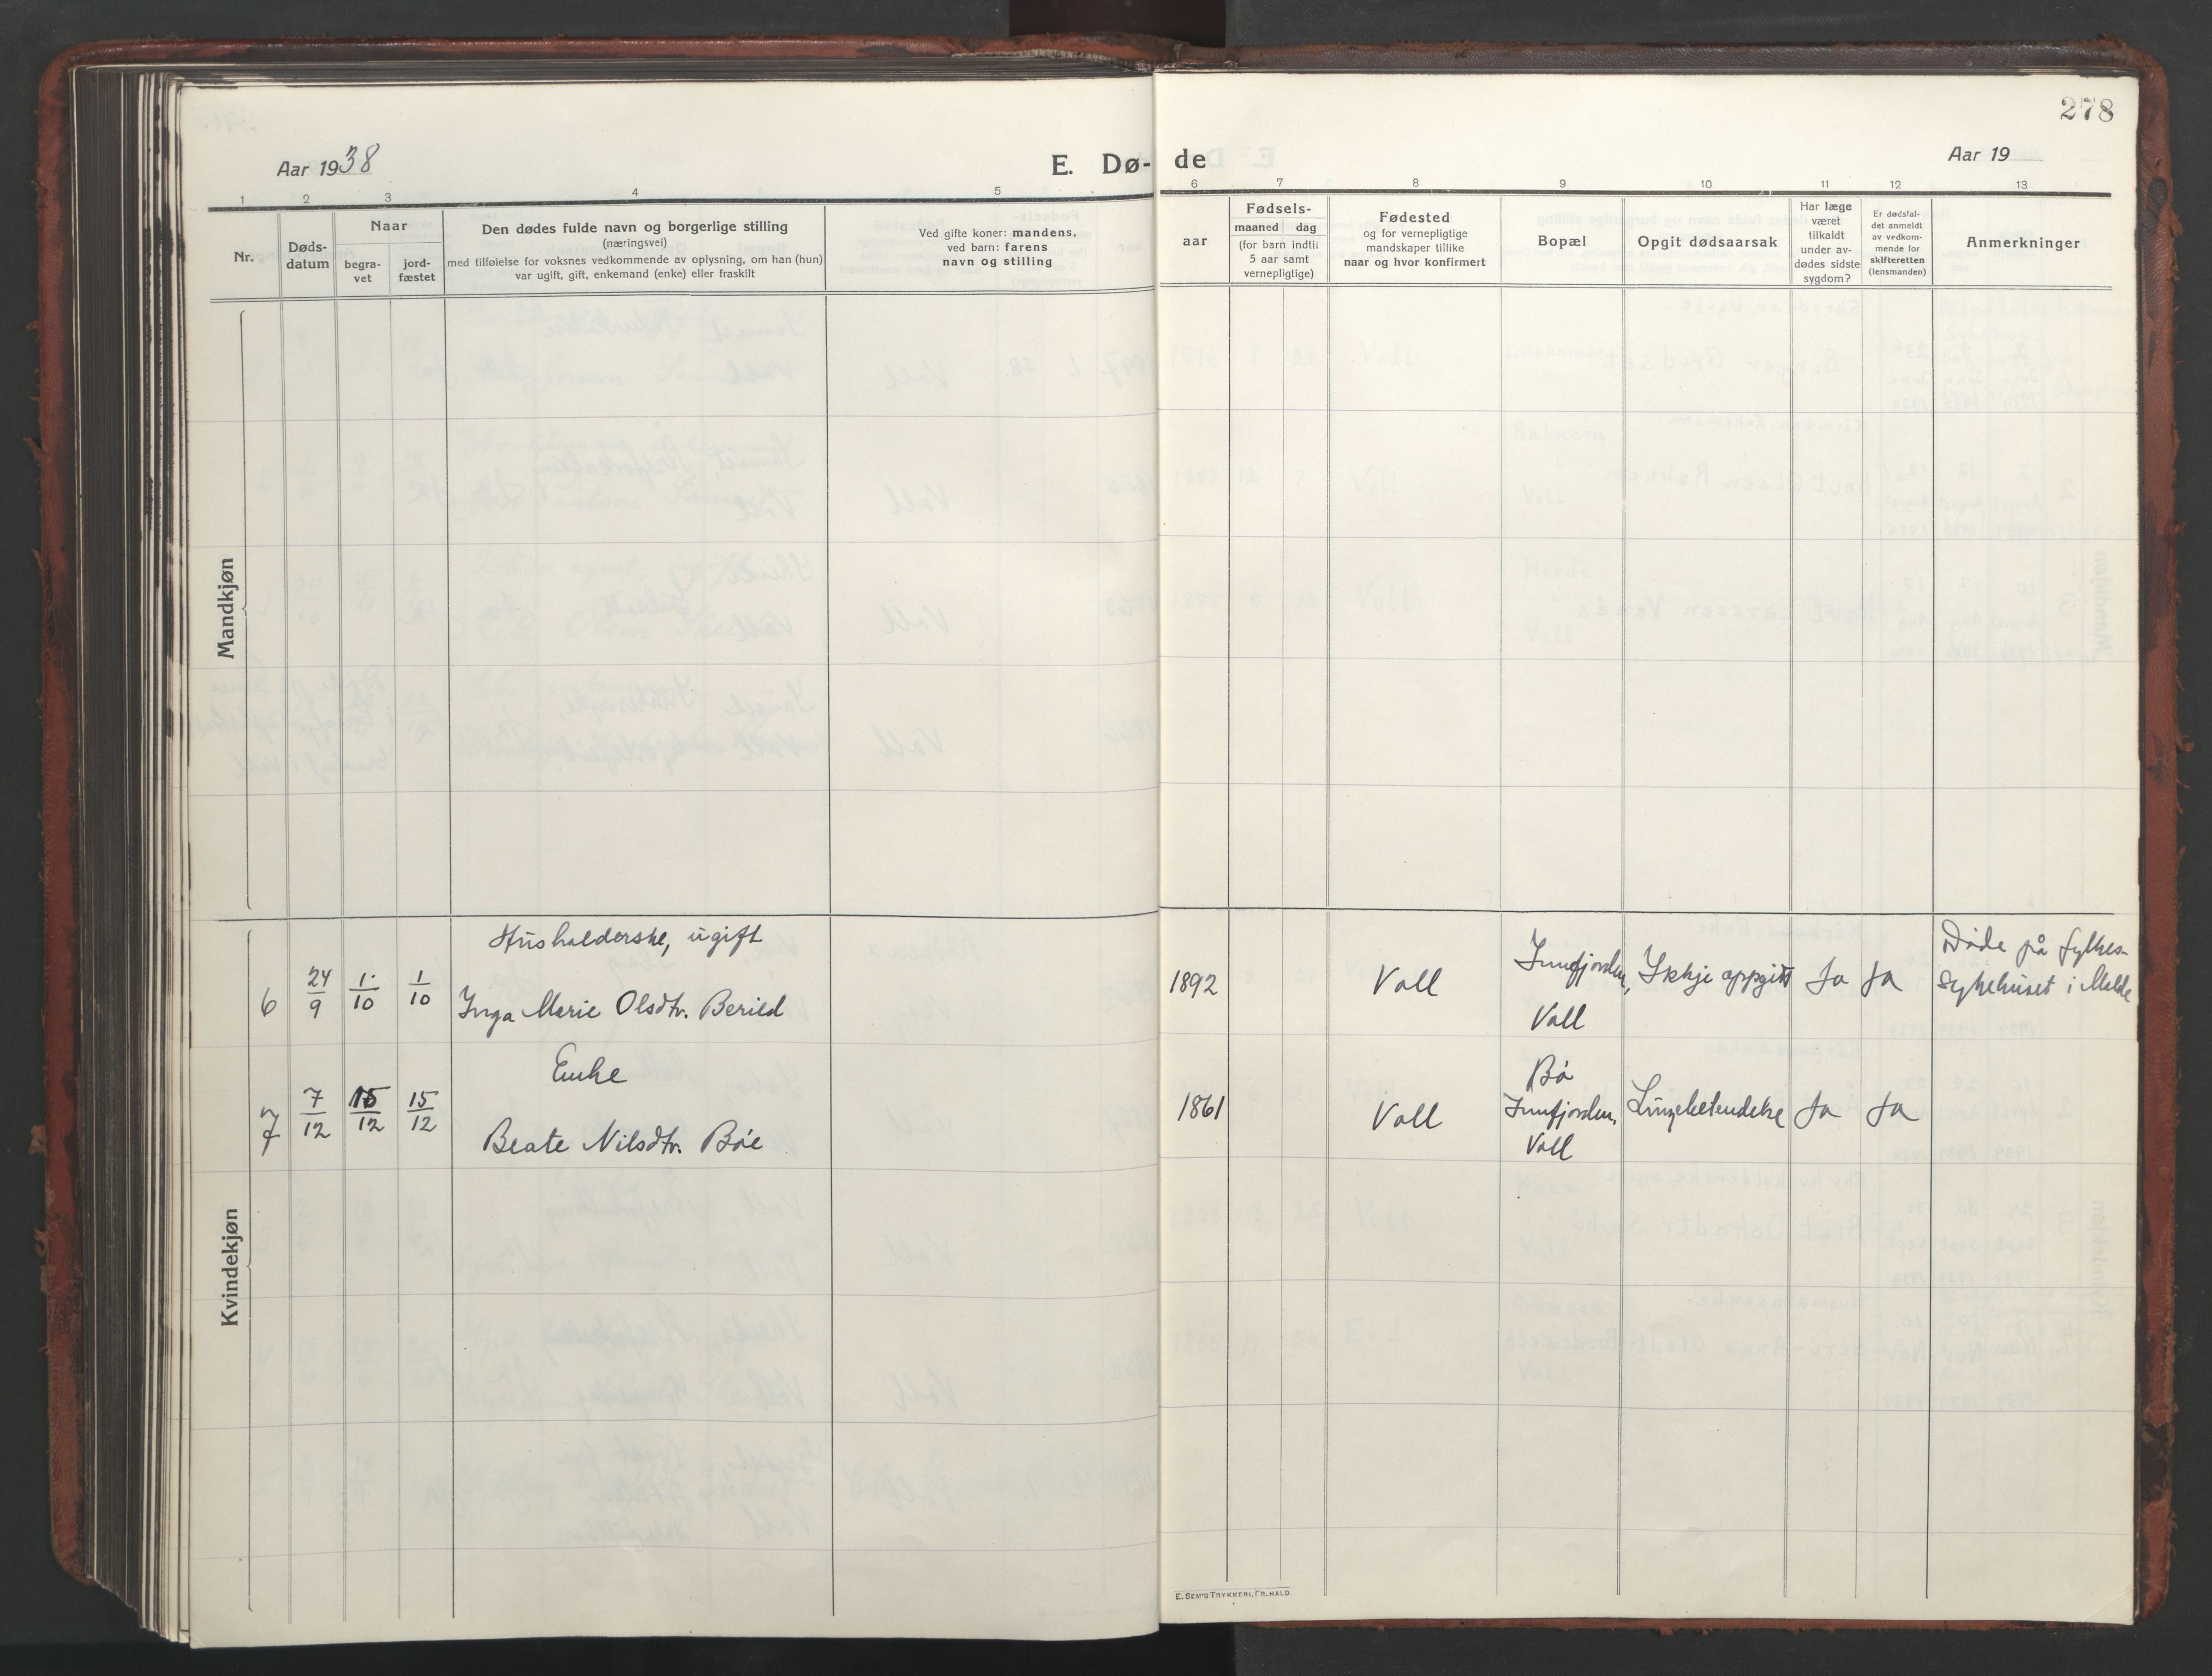 278
Aar 1938
E. Dø-
de
Aar 19
1 2 3 4 5
6 7 8 9 10 11 12 13
Nr.
Døds-
datum
Naar
begra-
vet
jord-
fæstet
Den dødes fulde navn og borgerlige stilling
(næringsvei)
med tilføielse for voksnes vedkommende av oplysning, om han (hun)
var ugift, gift, enkemand (enke) eller fraskilt
Ved gifte koner: mandens,
ved barn: farens
navn og stilling
Fødsels-
aar
maaned dag
(for barn indtil
5 aar samt
vernepligtige)
Fødested
og for vernepligtige
mandskaper tillike
naar og hvor konfirmert
Bopæl
Opgit dødsaarsak
Har læge
været
tilkaldt
under av-
dødes sidste
sygdom?
Er dødsfal-
det anmeldt
av vedkom-
mende for
skifteretten
(lensmanden)
Anmerkninger
Mandkjøn
Husholderske, ugift
6 24/9 1/10 1/10 Inga Marie Olsdtr. Berild
1892 Voll
Innfjorden,
Voll
Ikkje oppgitt Ja Ja
Døde på fylkes-
sykehuset i Molde
Enke
7 7/12 15/12 15/12
Beate Nilsdtr. Bøe
1861 Voll
Bø
Innfjorden,
Voll
Lungebetendelse Ja Ja
Kvindekjøn
E. SEM'S TRYKKERI, FR.HALD